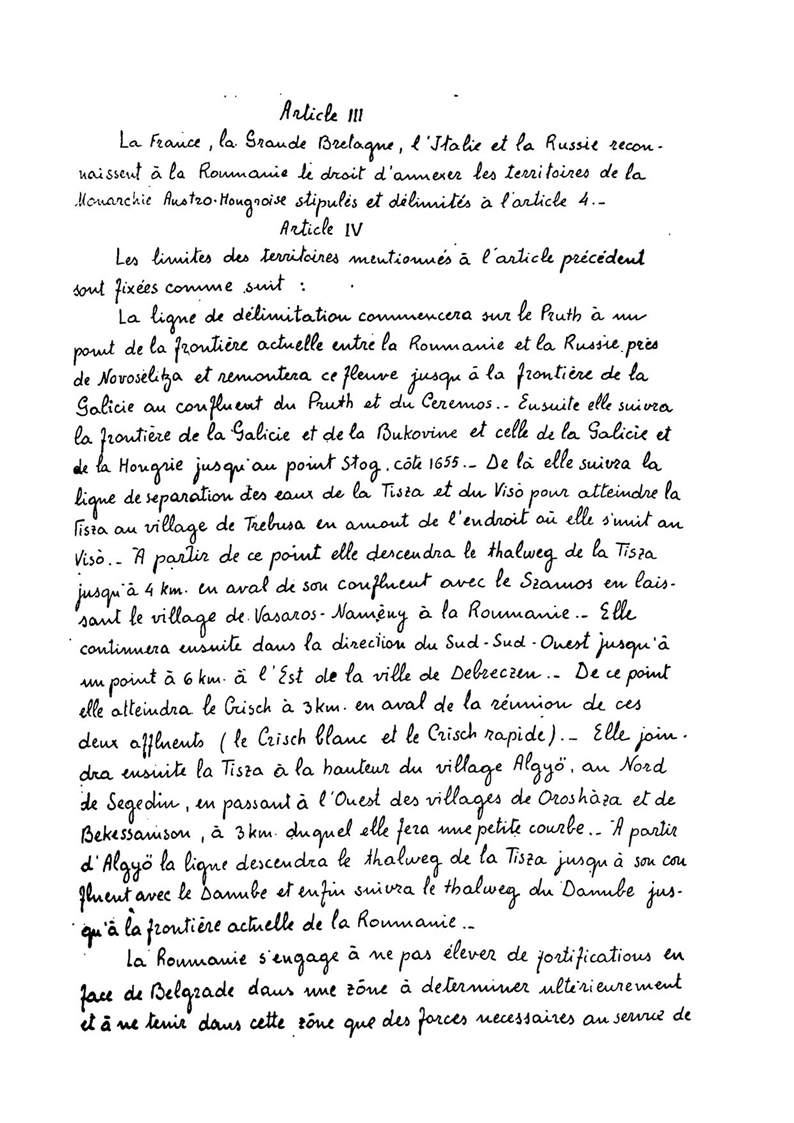 Article III
La France, la Grande Bretagne, l'Italie et la Russie recon-
naissent à la Roumanie le droit d'annexer les territoires de la
Monarchie Austro-Hongroise stipulés et délimités à l'article 4.-
Article IV
Les limites des territoires mentionnés à l'article précédent
sont fixées comme suit :
La ligne de délimitation commencera sur le Pruth à un
point de la frontière actuelle entre la Roumanie et la Russie près
de Novoselitza et remontera ce fleuve jusqu à la frontière de la
Galicie au confluent du Pruth et du Ceremos.- Ensuite elle suivra
la frontière de la Galicie et de la Bukovine et celle de la Galicie et
de la Hongrie jusqu'au point Stog, côte 1655.- De là elle suivra la
ligne de separation des eaux de la Tisza et du Visò pour atteindre la
Tisza au village de Trebusa en amont de l'endroit où elle s'unit au
Visò.- A partir de ce point elle descendra le thalweg de la Tisza
jusqu'à 4 km. en aval de son confluent avec le Szamos en lais-
sant le village de Vasaros-Namèny à la Roumanie.- Elle
continuera ensuite dans la direction du Sud-Sud-Ouest jusqu'à
un point à 6 km. à l'Est de la ville de Debreczen.- De ce point
elle atteindra le Crisch à 3 km. en aval de la réunion de ces
deux affluents (le Crisch blanc et le Crisch rapide).- Elle join-
dra ensuite la Tisza à la hauteur du village Algyö, au Nord
de Segedin, en passant à l'Ouest des villages de Oroshàza et de
Bekessamson, à 3 km. duquel elle fera une petite courbe.- A partir
d'Algyö la ligne descendra le thalweg de la Tisza jusqu à son con
fluent avec le Danube et enfin suivra le thalweg du Danube jus-
qu'à la frontière actuelle de la Roumanie.-
La Roumanie s'engage à ne pas élever de fortifications en
face de Belgrade dans une zône à determiner ultérieurement
et à ne tenir dans cette zône que des forces necessaires au service de